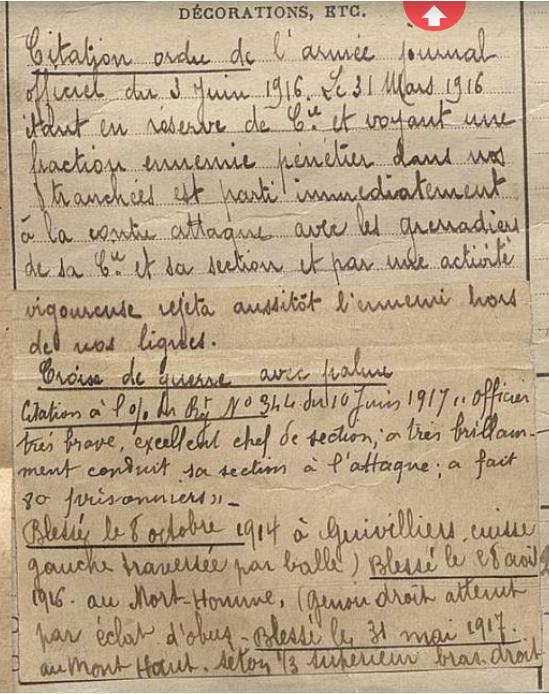 DÉCORATIONS, ETC.
Citation ordre de l'armée journal
officiel du 3 Juin 1916. Le 31 Mars 1916
étant en réserve de Cie et voyant une
fraction ennemie pénétrer dans nos
tranchées est parti immédiatement
à la contre attaque avec les grenadiers
de sa Cie et sa section et par une activité
vigoureuse rejeta aussitôt l'ennemi hors
de nos lignes.
Croix de guerre avec palme
Citation à l'o/ du Rgt No 344 du 10 Juin 1917 " officier
très brave, excellent chef de section; a très brillam-
ment conduit sa section à l'attaque; a fait
80 prisonniers " -
Blessé le 8 octobre 1914 à cuisse
gauche traversée par balle) Blessé le 28 août
1916. au Mort-Homme, (genou droit atteint
par éclat d'obus - Blessé le 31 mai 1917.
au Mont Haut. 1/3 supérieur bras droit